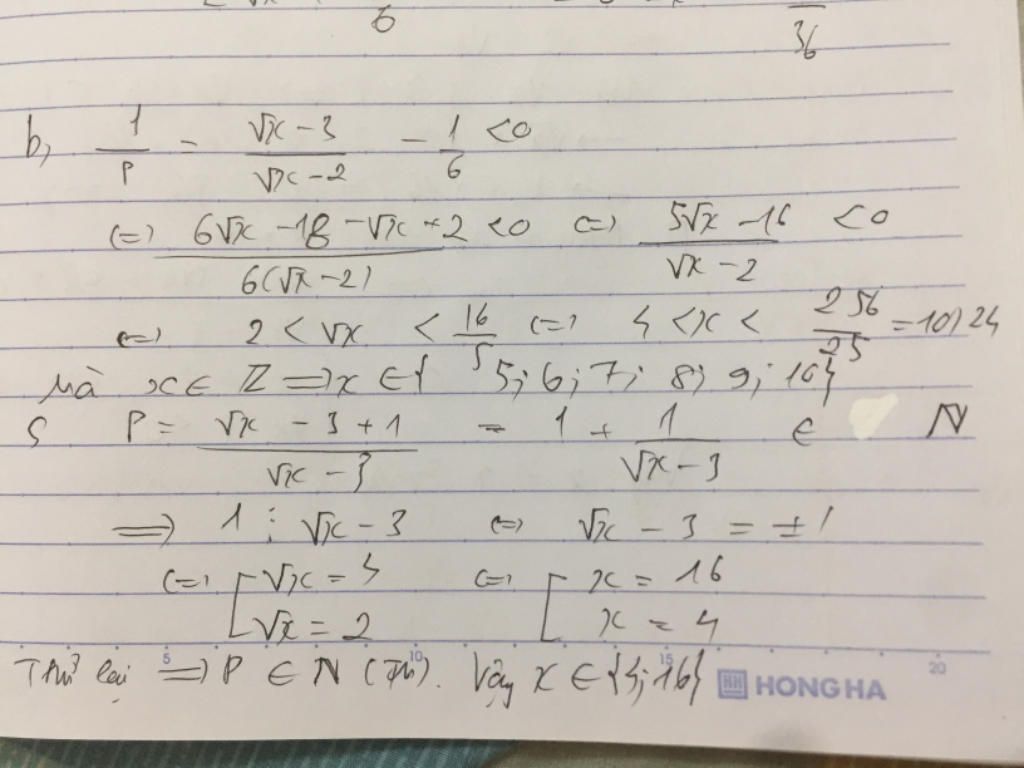 6
36
b, 1/P = (√x - 3)/(√x - 2) - 1/6 < 0
(=) (6√x - 18 - √x + 2)/(6(√x - 2)) < 0 (=) (5√x - 16)/(√x - 2) < 0
(=) 2 < √x < 16/5 (=) 4 < x < 256/25 = 10,24
Mà x ∈ ℤ => x ∈ { 5; 6; 7; 8; 9; 10}
c P = (√x - 3 + 1)/(√x - 3) = 1 + 1/(√x - 3) ∈ N
=> 1 ⋮ √x - 3 (=) √x - 3 = ±1
(=) [ √x = 4 (=) [ x = 16
√x = 2 x = 4
5 10 15 20
Thử lại => P ∈ N (TM). Vậy x ∈ {4; 16}
HH HONG HA